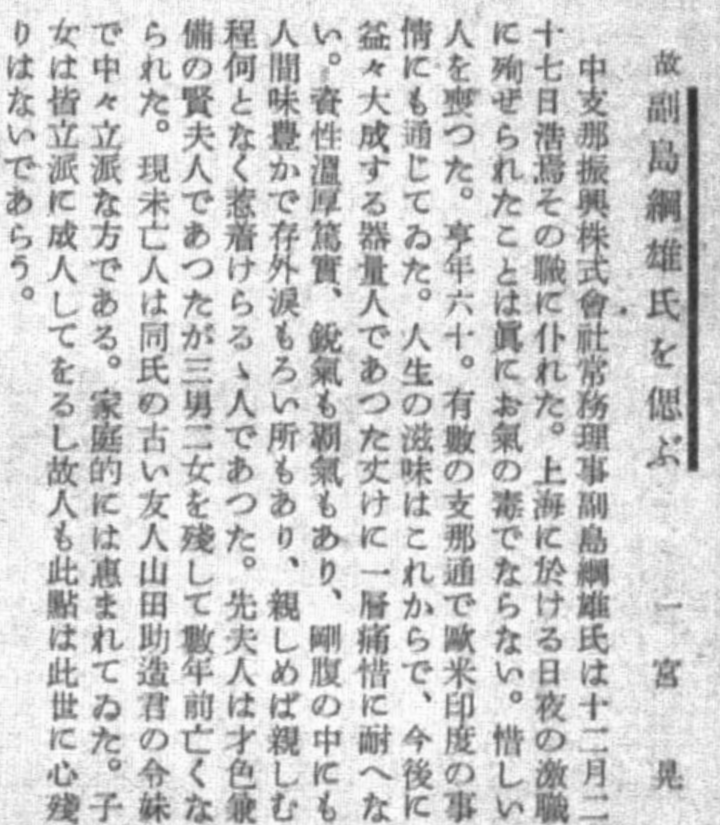 故副島綱雄氏を偲ぶ 一宮晃
中支那振興株式會社常務理事副島綱雄氏は十二月二
十七日浩焉その職に仆れた。上海に於ける日夜の激職
に殉ぜられたことは眞にお氣の毒でならない。惜しい
人を喪つた。享年六十。有數の支那通で歐米印度の事
情にも通じてゐた。人生の滋味はこれからで、今後に
益々大成する器量人であつた丈けに一層痛惜に耐へな
い。資性溫厚篤實、銳氣も覇氣もあり、剛腹の中にも
人間味豊かで存外淚もろい所もあり、親しめば親しむ
程何となく惹着けらるゝ人であつた。先夫人は才色兼
備の賢夫人であつたが三男二女を殘して數年前亡くな
られた。現未亡人は同氏の古い友人山田助造君の令妹
で中々立派な方である。家庭的には惠まれてゐた。子
女は皆立派に成人してをるし故人も此點は此世に心殘
りはないであらう。